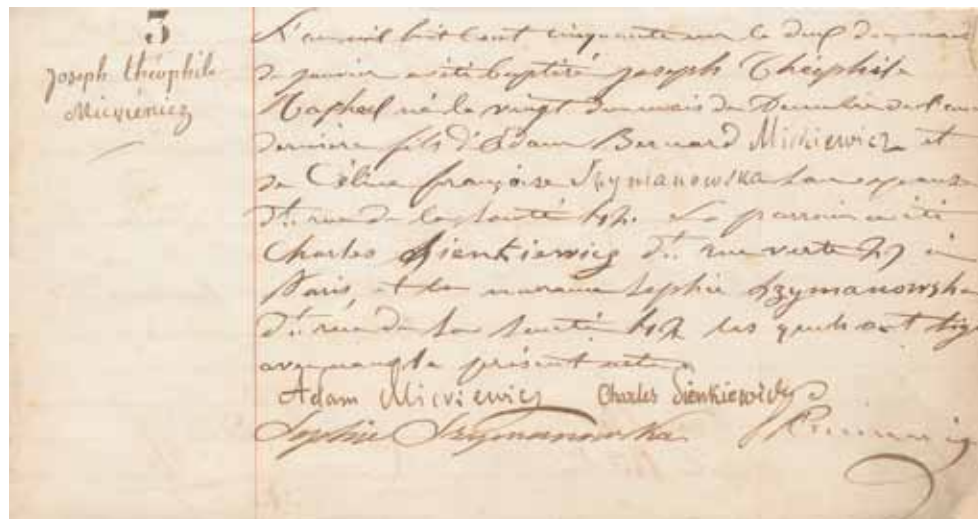 3
Joseph théophile
Micviéniez
L'an mil huit cent cinquante un le deux du mois
de janvier a été baptisé joseph Théophile
Raphael né le vingt du mois de Decembre de l'année
dernière fils d'Adam Bernard Mickiewicz et
de Céline françoise Szymanowska son épouse
dt. rue de la santé 42. Le parrain a été
Charles Sienkiewicz dt. rue verte à
Paris, et la marraine Sophie Szymanowska
dt. rue de la santé 42 les quels ont signé
avec nous le présent acte
Adam Micviewicz Charles Sienkiewicz
Sophie Szymanowska